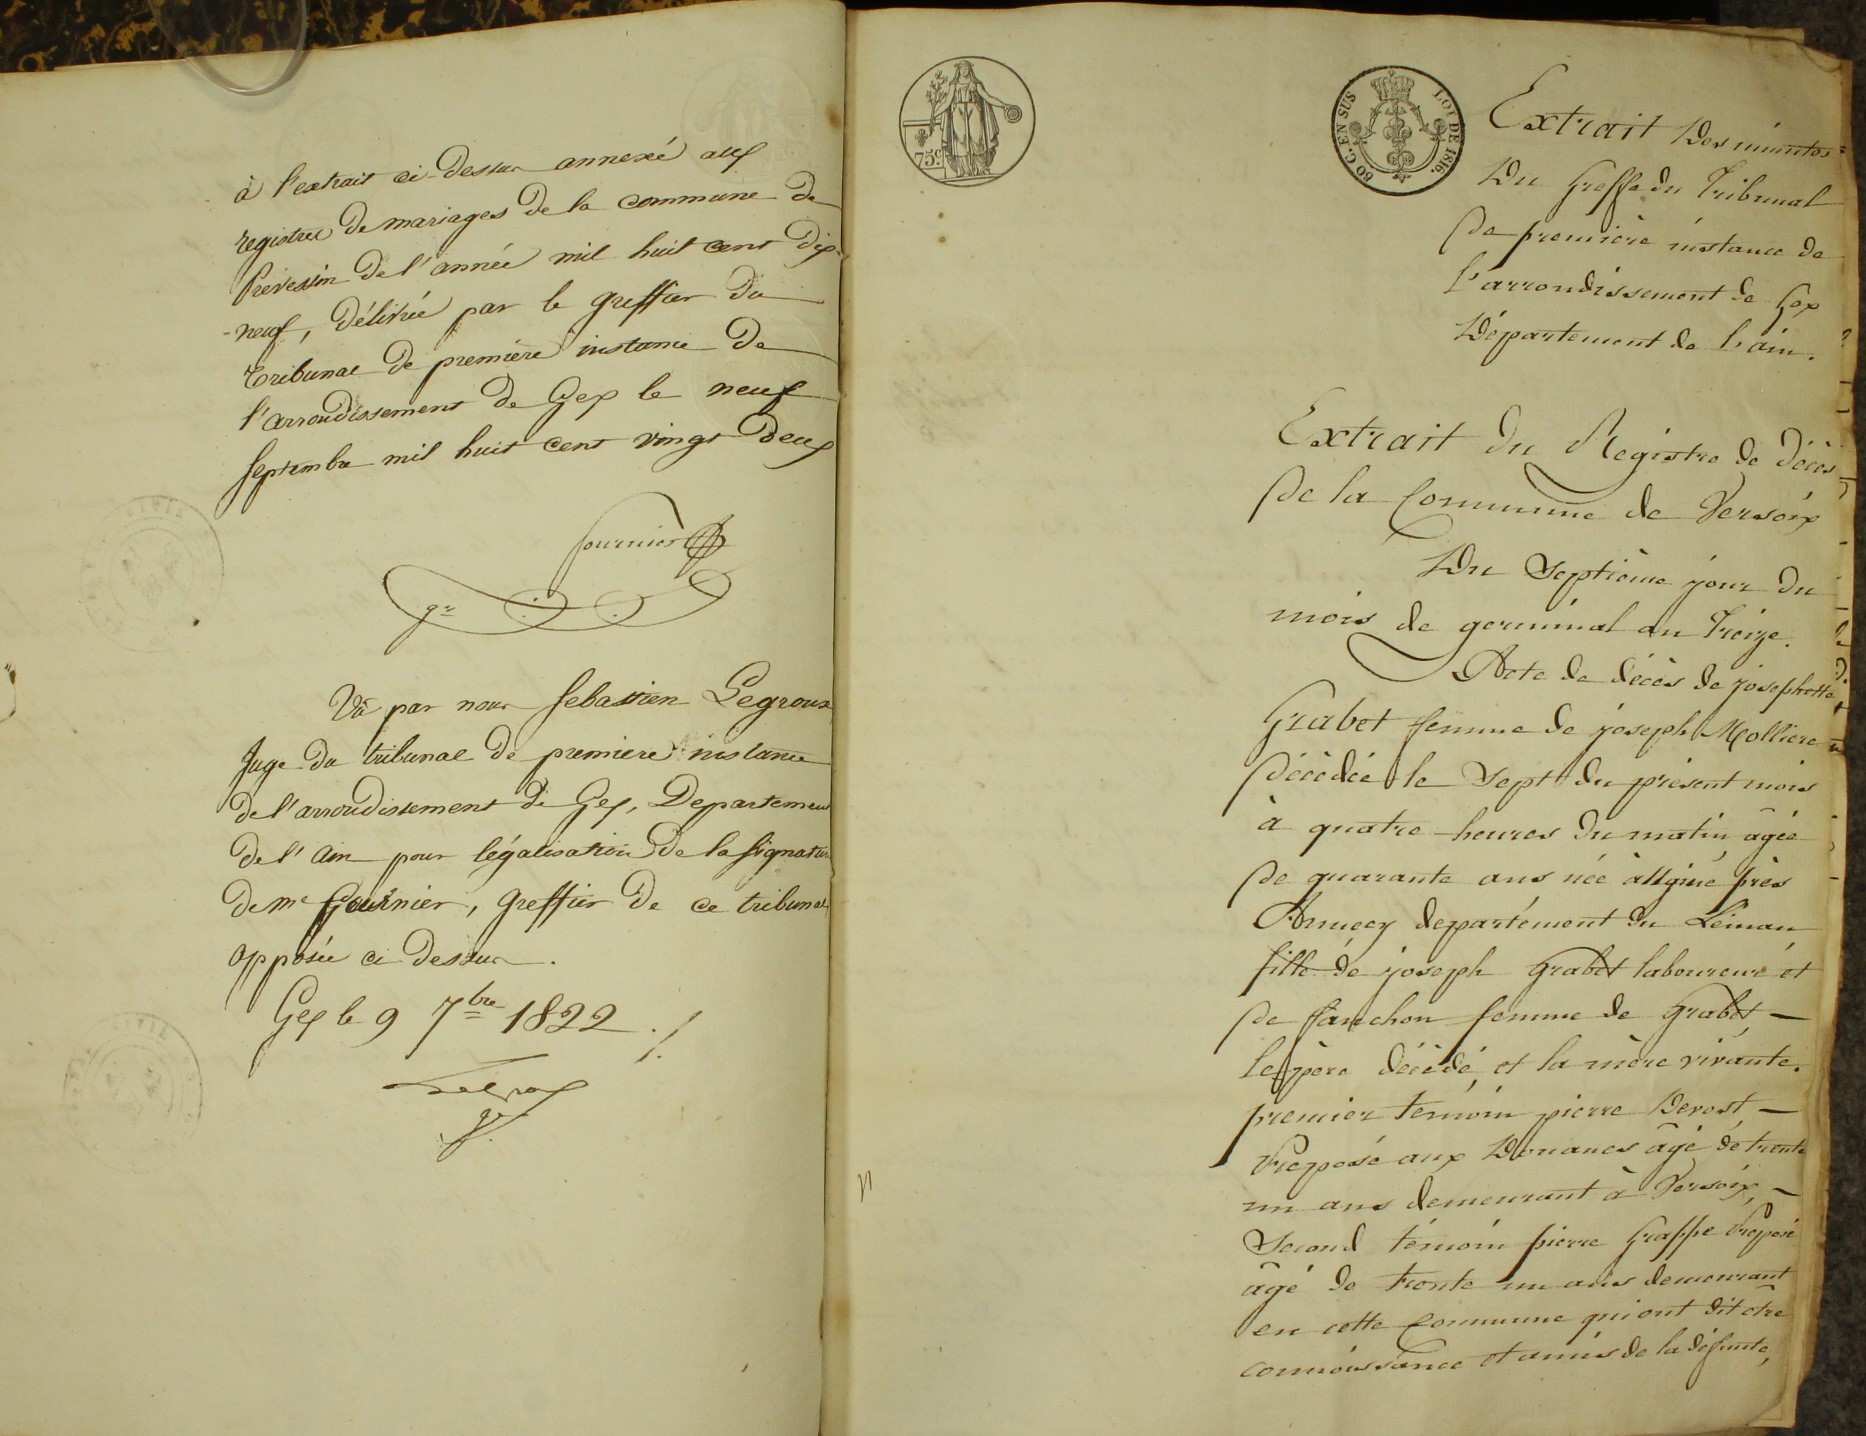 à l'extrait ci-dessus annexé aux
registres de mariages de la commune de
Prevessin de l'année mil huit cent dix-
-neuf, délivrée par le greffier du
tribunal de première instance de
l'arrondissement de Gex le neuf
septembre mil huit cent vingt deux
fournier
gr
Vû par nous Sebastien Legroux
Juge du tribunal de premiere instance
de l'arrondissement de Gex, Departement
de l'ain pour légalisation de la signature
de me fournier, greffier de ce tribunal
apposée ci dessus.
Gex le 9 7bre 1822 ./.
75c
60 C. EN SUS
LOI DE 1816.
Extrait des minutes
du Greffe du Tribunal
de première instance de
l'arrondissement de Gex
Département de l'ain.
Extrait du Registre de décès
de la Commune de Versoix
du Septième jour du
mois de germinal an Treize.
Acte de décès de josephette
Grabet femme de joseph Molliere
décédée le Sept du présent mois
à quatre heures du matin, agée
de quarante ans née à près
Annecy département du Léman
fille de joseph Grabet laboureur et
de fanchon femme de Grabet, —
le père décédé, et la mère vivante.
premier témoin pierre Devost —
Préposé aux Douanes âgé de trente
un ans demeurant à Versoix, —
Second témoin pierre Grappe Préposé
âgé de trente un ans demeurant
en cette Commune qui ont dit etre
connoissance et amis de la défunte,